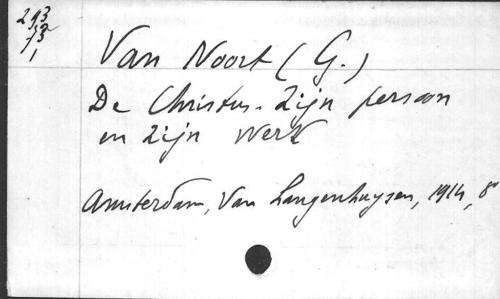 293
13
1
Van Noort (G.)
De Christus. Zijn persoon
en zijn werk
Amsterdam, Van Langenhuysen, 1914, 8º